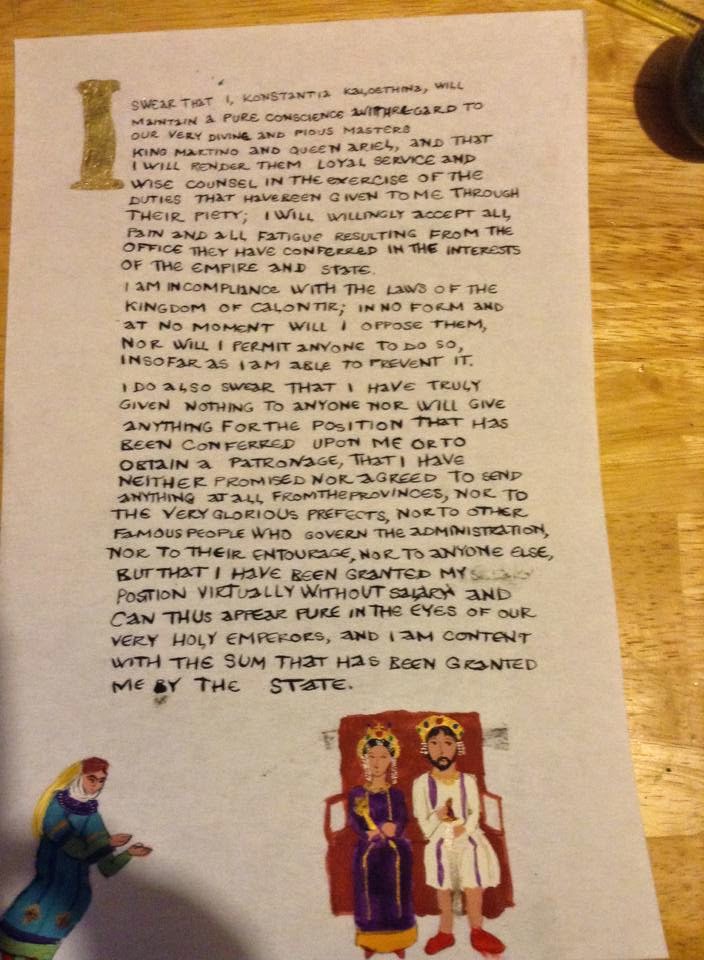 I
SWEAR THAT I, KONSTANTIA KALOETHINA, WILL
MAINTAIN A PURE CONSCIENCE WITH REGARD TO
OUR VERY DIVINE AND PIOUS MASTERS
KING MARTINO AND QUEEN ARIEL, AND THAT
I WILL RENDER THEM LOYAL SERVICE AND
WISE COUNSEL IN THE EXERCISE OF THE
DUTIES THAT HAVE BEEN GIVEN TO ME THROUGH
THEIR PIETY; I WILL WILLINGLY ACCEPT ALL
PAIN AND ALL FATIGUE RESULTING FROM THE
OFFICE THEY HAVE CONFERRED IN THE INTERESTS
OF THE EMPIRE AND STATE.
I AM IN COMPLIANCE WITH THE LAWS OF THE
KINGDOM OF CALONTIR; IN NO FORM AND
AT NO MOMENT WILL I OPPOSE THEM,
NOR WILL I PERMIT ANYONE TO DO SO,
INSOFAR AS I AM ABLE TO PREVENT IT.
I DO ALSO SWEAR THAT I HAVE TRULY
GIVEN NOTHING TO ANYONE NOR WILL GIVE
ANYTHING FOR THE POSITION THAT HAS
BEEN CONFERRED UPON ME OR TO
OBTAIN A PATRONAGE, THAT I HAVE
NEITHER PROMISED NOR AGREED TO SEND
ANYTHING AT ALL FROM THE PROVINCES, NOR TO
THE VERY GLORIOUS PREFECTS, NOR TO OTHER
FAMOUS PEOPLE WHO GOVERN THE ADMINISTRATION,
NOR TO THEIR ENTOURAGE, NOR TO ANYONE ELSE,
BUT THAT I HAVE BEEN GRANTED MY
POSITION VIRTUALLY WITHOUT SALARY AND
CAN THUS APPEAR PURE IN THE EYES OF OUR
VERY HOLY EMPERORS, AND I AM CONTENT
WITH THE SUM THAT HAS BEEN GRANTED
ME BY THE STATE.